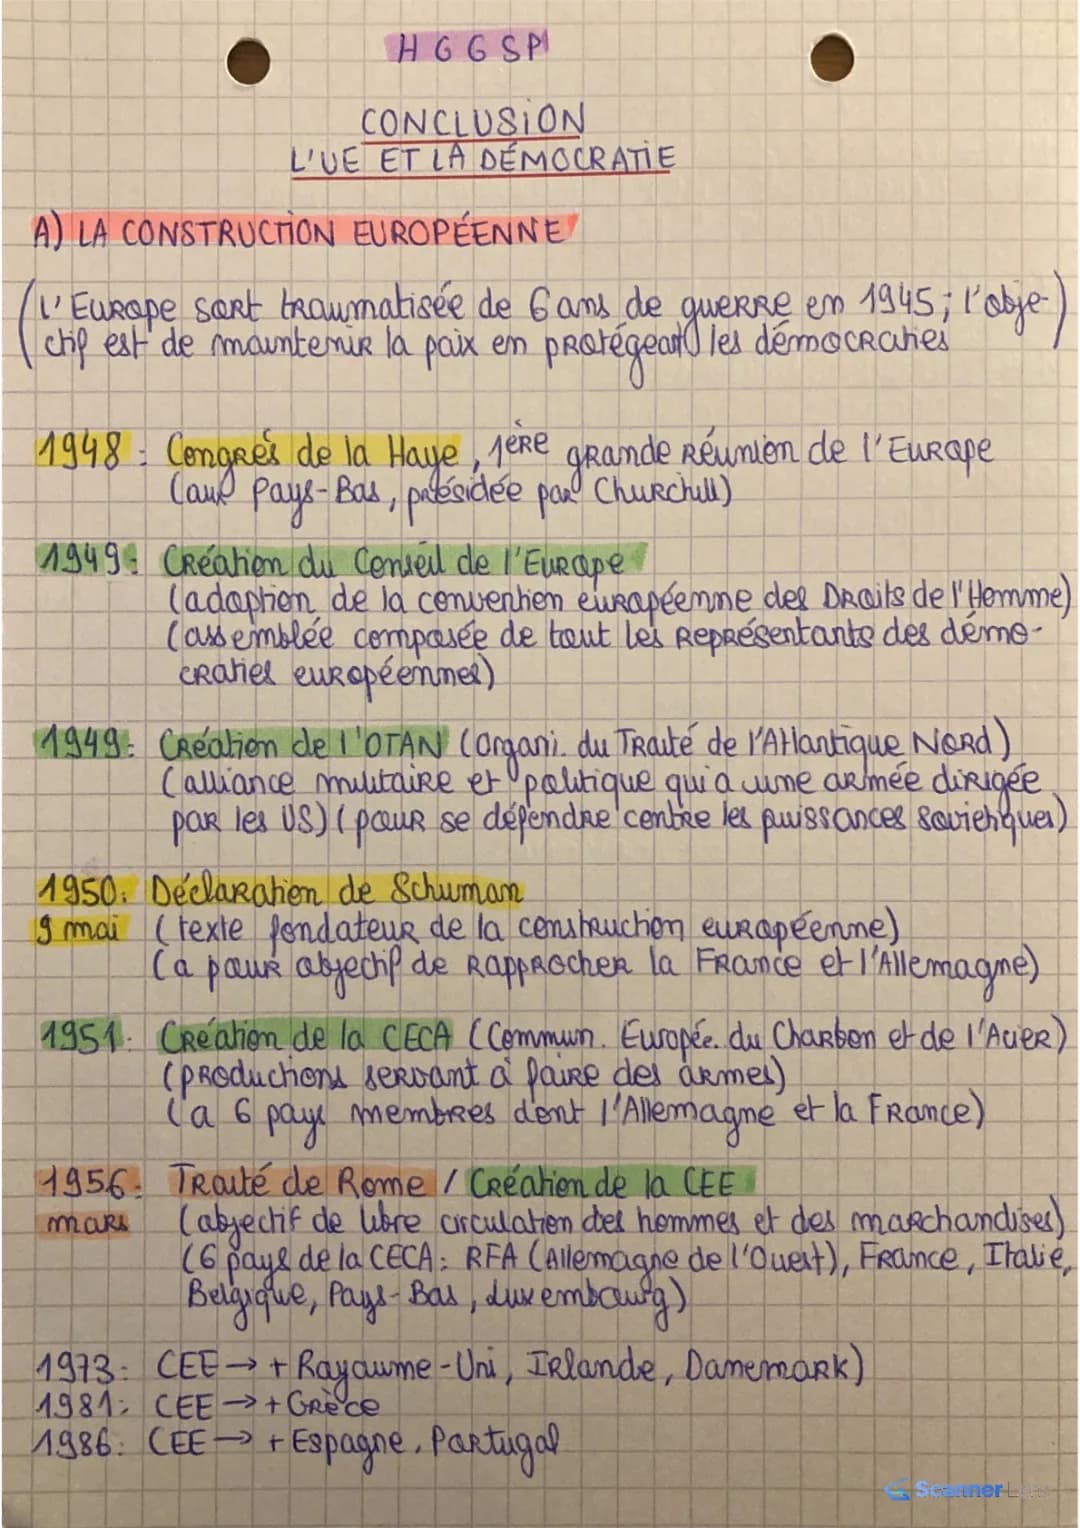 HGGSP
CONCLUSION
L'UE ET LA DÉMOCRATIE
A) LA CONSTRUCTION EUROPÉENNE
(L'Europe sort traumatisée de 6 ans de guerre en 1945 ; l'obje-)
(ctif est de maintenir la paix en protégeant les démocraties
1948 : Congrès de la Haye, 1ère grande réunion de l'Europe
(aux Pays-Bas, présidée par Churchill)
1949 : Création du Conseil de l'Europe
(adoption de la convention européenne des Droits de l'Homme)
(assemblée composée de tout les représentants des démo-
craties européennes)
1949 : Création de l'OTAN (Organi. du Traité de l'Atlantique Nord)
(alliance militaire et politique qui a une armée dirigée
par les US) (pour se défendre contre les puissances soviétiques)
1950 : Déclaration de Schuman
9 mai (texte fondateur de la construction européenne)
(a pour objectif de rapprocher la France et l'Allemagne)
1951 : Création de la CECA (Commun. Europée. du Charbon et de l'Acier)
(productions servant à faire des armes)
(a 6 pays membres dont l'Allemagne et la France)
1956 : Traité de Rome / Création de la CEE
mars (objectif de libre circulation des hommes et des marchandises)
(6 pays de la CECA : RFA (Allemagne de l'Ouest), France, Italie,
Belgique, Pays-Bas, Luxembourg)
1973 : CEE → + Royaume-Uni, Irlande, Danemark)
1981 : CEE → + Grèce
1986 : CEE → + Espagne, Portugal
Scanner